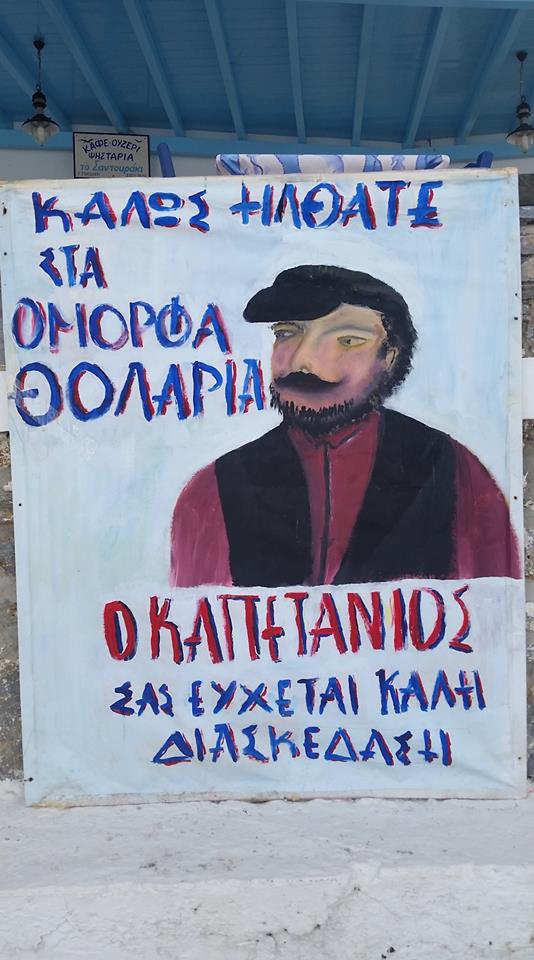 ΚΑΦΕ-ΟΥΖΕΡΙ
ΨΗΣΤΑΡΙΑ
ΤΟ Σαντουράκι
ΚΑΛΩΣ ΗΛΘΑΤΕ
ΣΤΑ
ΟΜΟΡΦΑ
ΘΟΛΑΡΙΑ
Ο ΚΑΠΕΤΑΝΙΟΣ
ΣΑΣ ΕΥΧΕΤΑΙ ΚΑΛΗ
ΔΙΑΣΚΕΔΑΣΗ